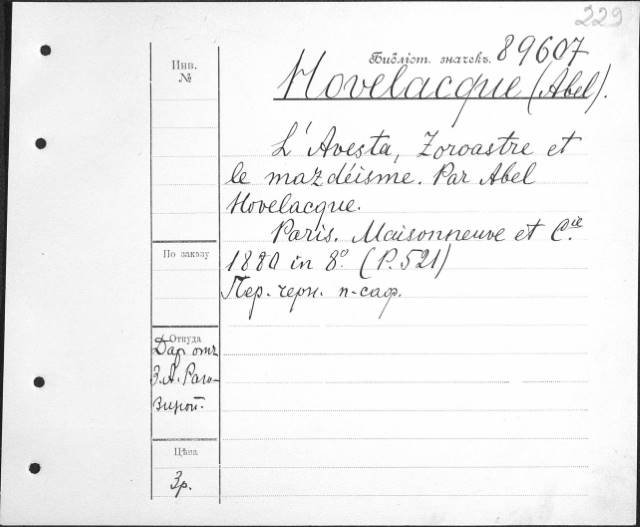 229
Инв.
№
Библіот. значекъ. 89607
Hovelacque (Abel).
L'Avesta, Zoroastre et
le mazdéisme. Par Abel
Hovelacque.
Paris. Maisonneuve et Cie.
1880 in 8º. (P. 521)
Пер. черн. п-саф.
По заказу
Откуда
Дар отъ
З. А. Раго-
зиной.
Цѣна
3р.